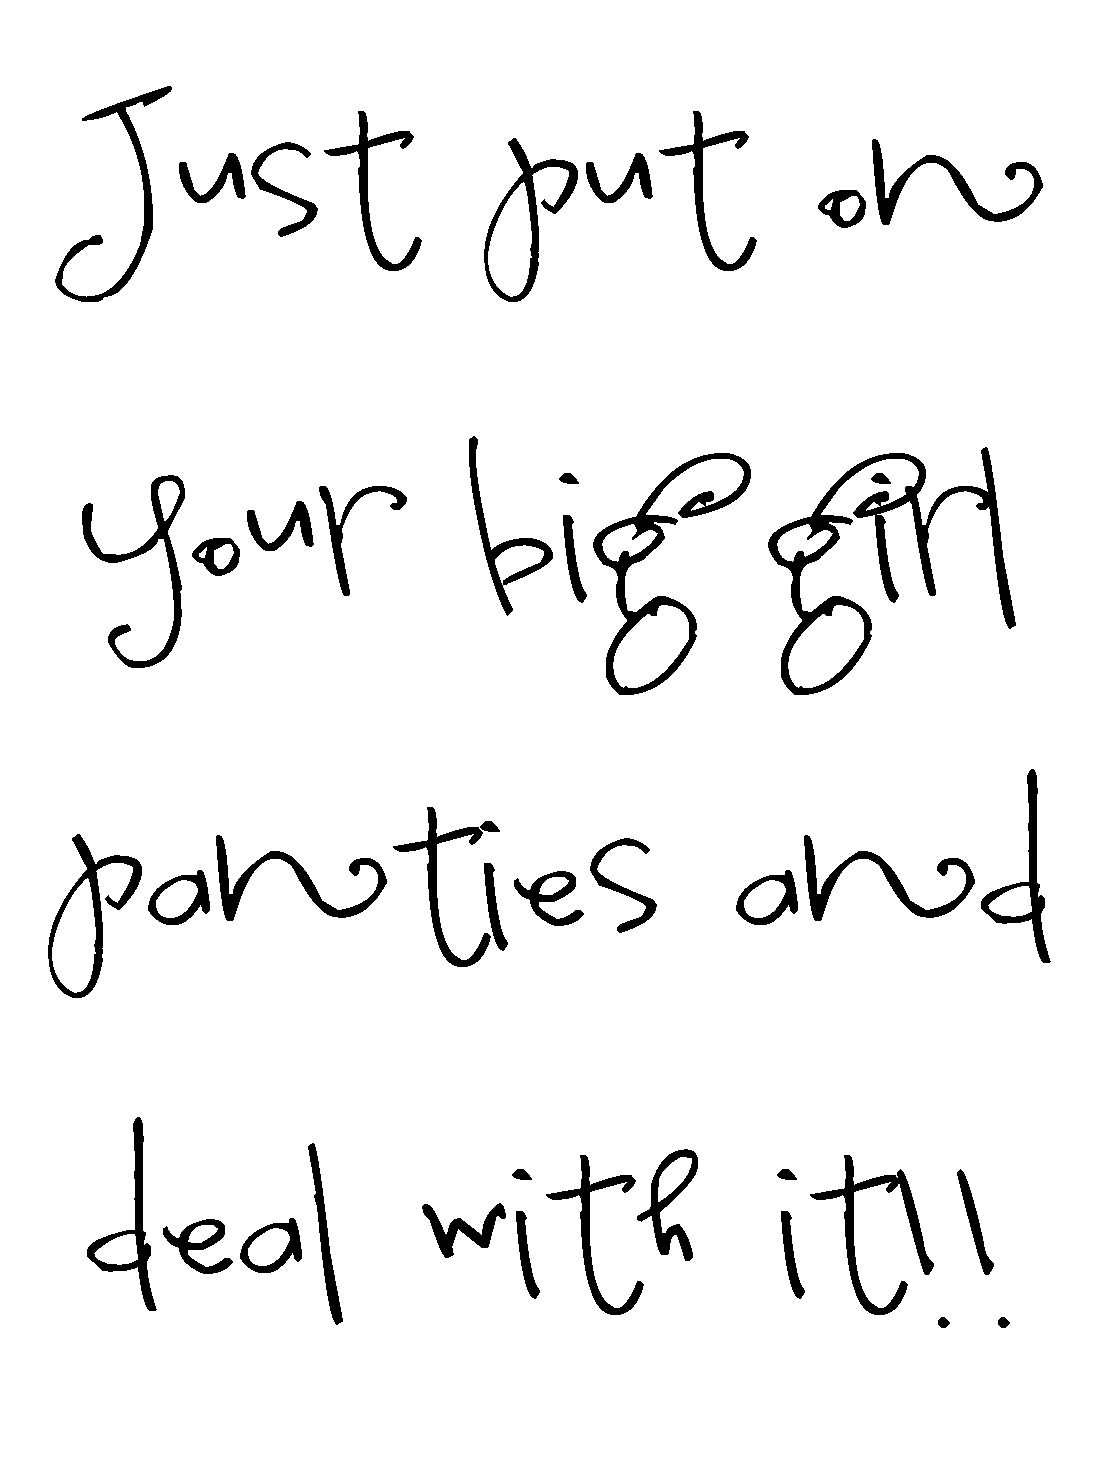 Just put on
your big girl
panties and
deal with it!!